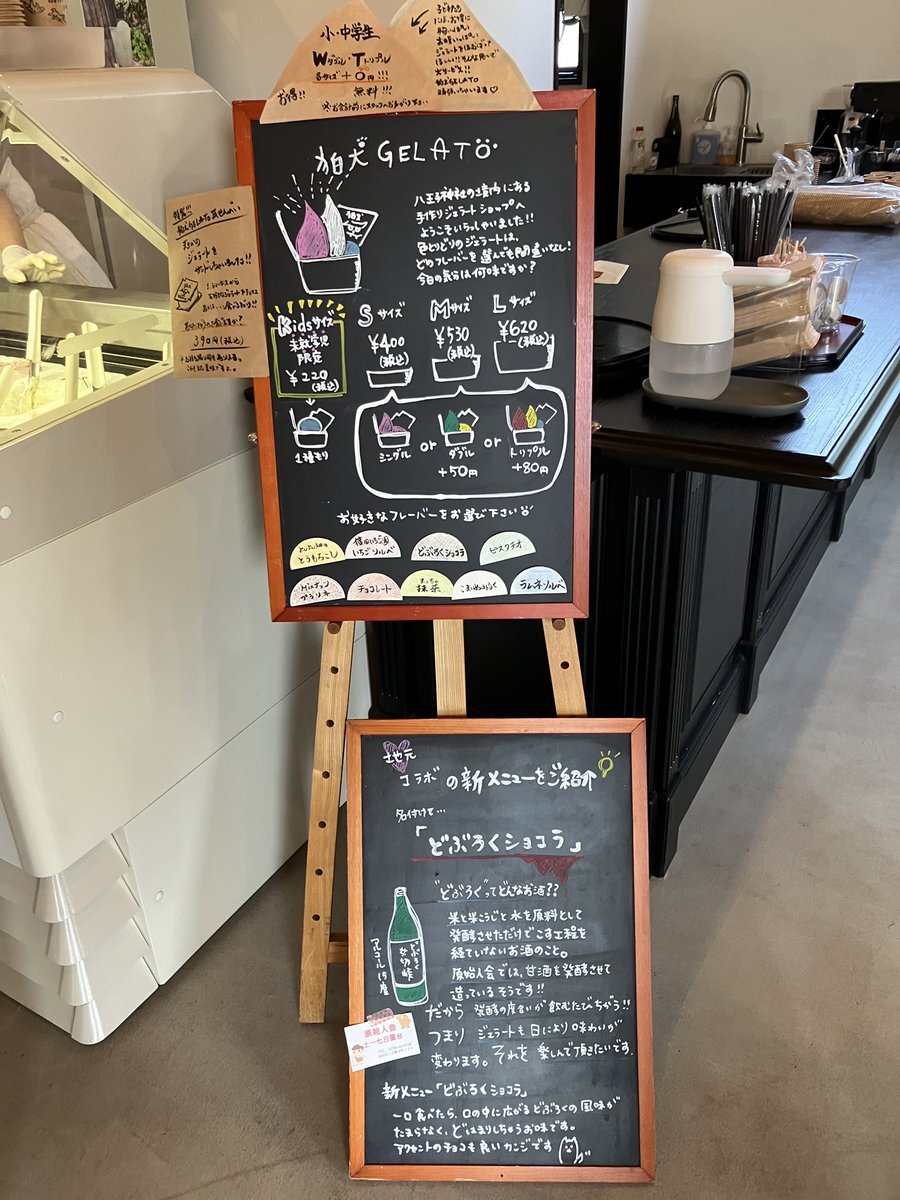 小・中学生
Wダブル・Tトリプル
各サイズ+0円!!!
お得!! 無料!!!
狛犬GELATO
八王子神社の境内にある
手作りジェラートショップへ
ようこそいらっしゃいました!!
色とりどりのジェラートは、
どのフレーバーを選んでも間違いなし!
今日の気分は何味ですか?
Kidsサイズ
未就学児
限定
¥220
(税込)
1種もり
Sサイズ
¥400
(税込)
Mサイズ
¥530
(税込)
Lサイズ
¥620
(税込)
シングル or ダブル or トリプル
+50円 +80円
お好きなフレーバーをお選び下さい
とうもろこし
いちごソルベ
どぶろくショコラ
ピスタチオ
チョコレート
抹茶
ラムネソルベ
ジェラートを
サンドしちゃいました!!
390円(税込)
地元
コラボの新メニューをご紹介
名付けて…
「どぶろくショコラ」
"どぶろく"ってどんなお酒??
米と米こうじと水を原料として
発酵させただけでこす工程を
経ていないお酒のこと。
原始人会では、甘酒を発酵させて
造っているそうです!!
だから 発酵の度合いが飲むたびちがう!!
つまり ジェラートも日により味わいが
変わります。それを楽しんで頂きたいです。
どぶろく
女切峠
アルコール15度
原始人会
土一七日屋台
新メニュー「どぶろくショコラ」
一口食べたら、口の中に広がるどぶろくの風味が
たまらなく、どはまりしちゃうお味です。
アクセントのチョコも良いカンジです